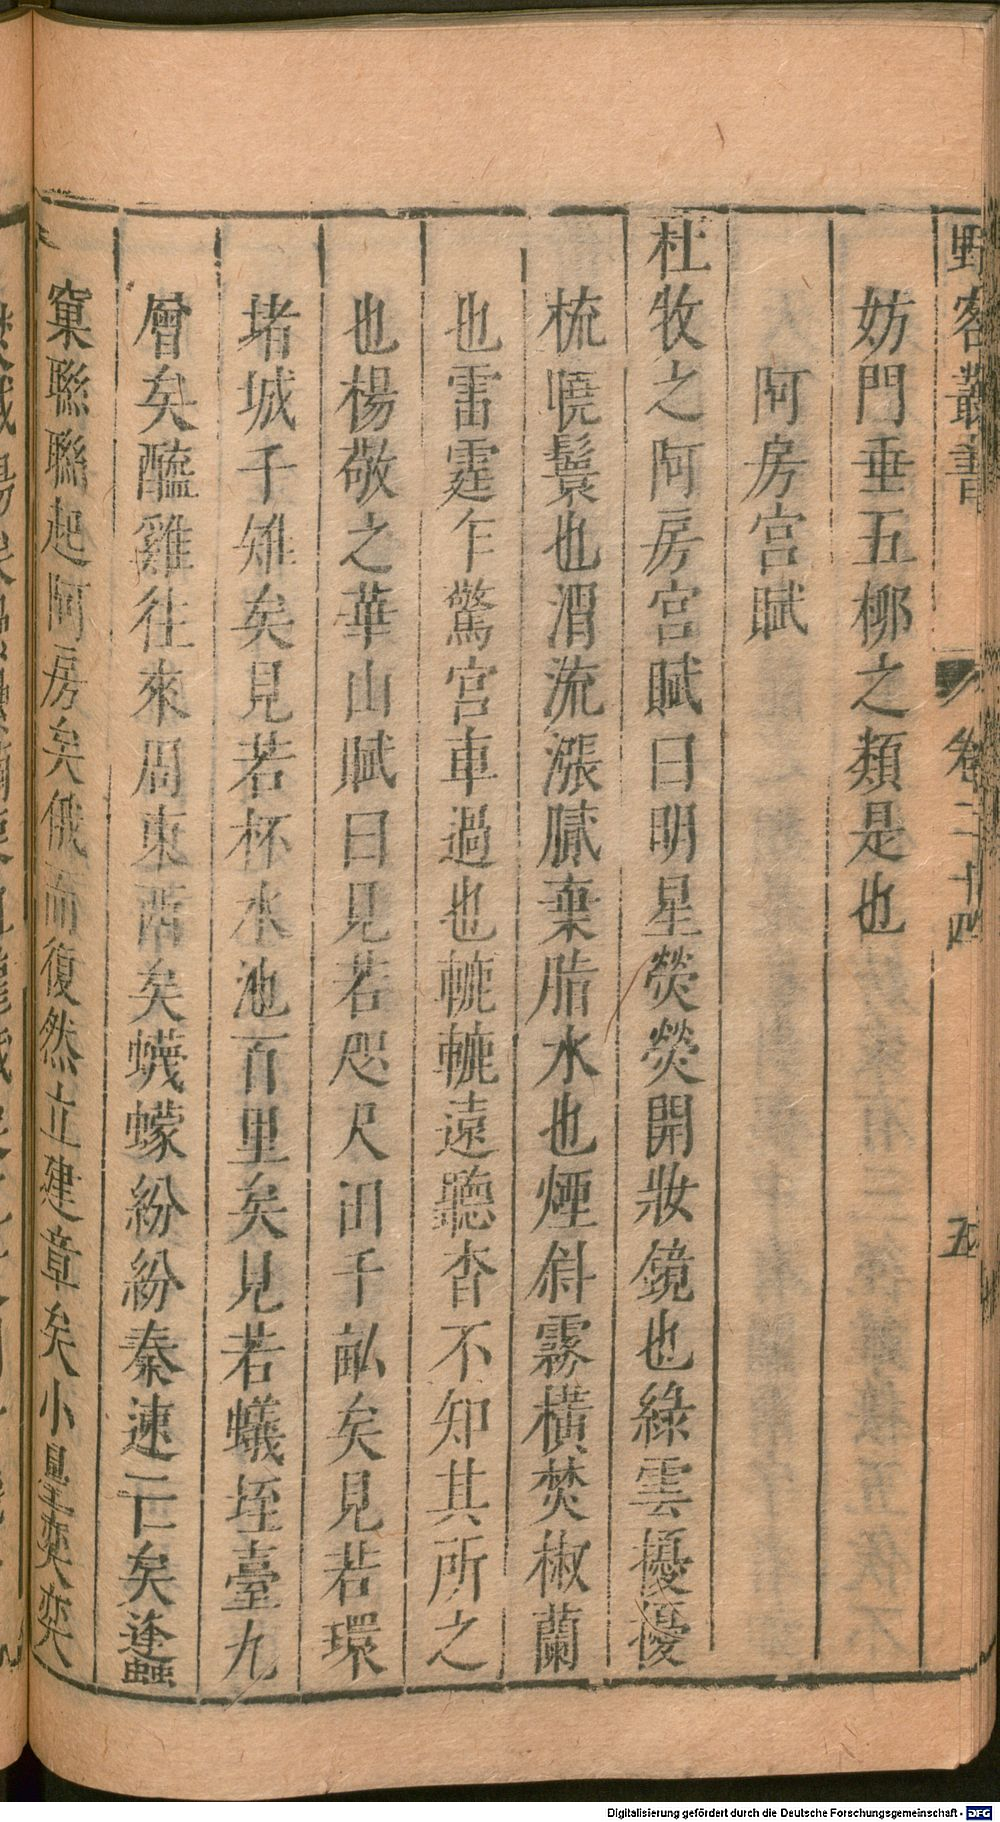 野客叢書 卷二十四 五
妨門垂五桺之類是也
阿房宮賦
杜牧之阿房宮賦曰明星熒熒開妝鏡也綠雲擾擾
梳曉鬟也渭流漲膩棄脂水也煙斜霧橫焚椒蘭
也雷霆乍驚宮車過也轆轆遠聽杳不知其所之
也楊敬之華山賦曰見若咫尺田千畝矣見若環
堵城千雉矣見若杯水池百里矣見若蟻垤臺九
層矣醯雞往來周東西矣蠛蠓紛紛秦速亡矣蠭
窠聯聯起阿房矣俄而復然立建章矣小星奕奕
Digitalisierung gefördert durch die Deutsche Forschungsgemeinschaft - DFG